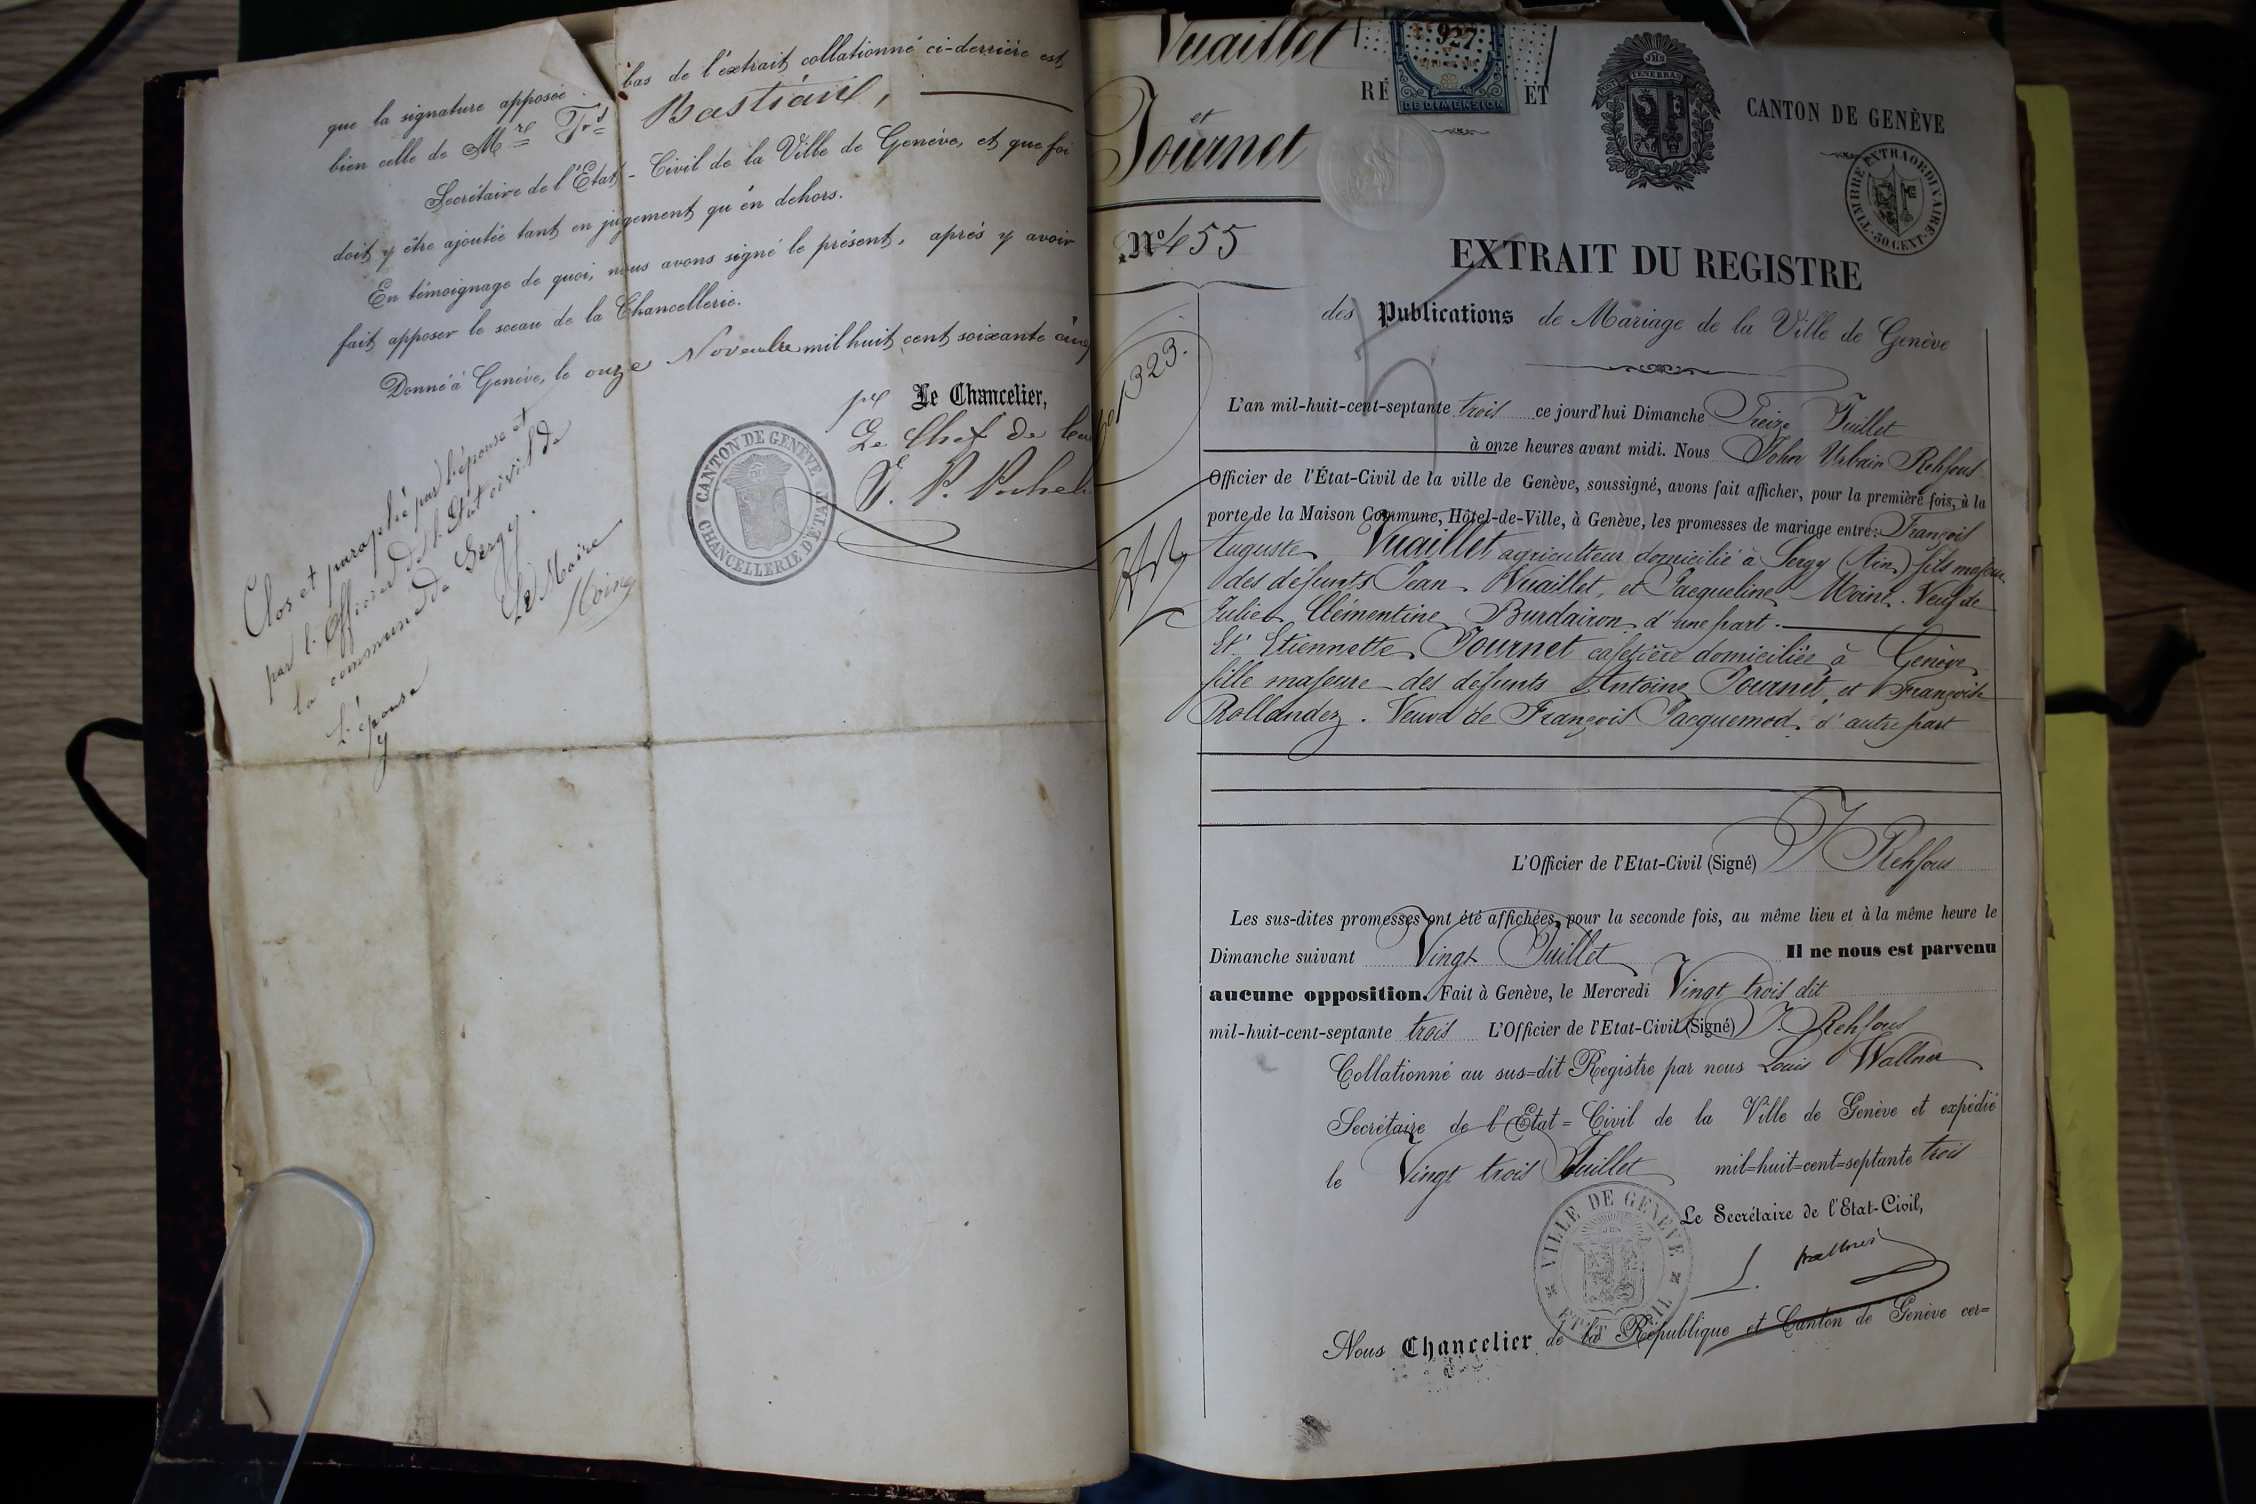 que la signature apposée bas de l'extrait collationné ci-derrière est
bien celle de Mre Frs Bastian,
Secrétaire de l'Etat-Civil de la Ville de Genève, et que foi
doit y être ajoutée tant en jugement qu'en dehors.
En témoignage de quoi, nous avons signé le présent, après y avoir
fait apposer le sceau de la Chancellerie.
Donné à Genève, le onze Novembre mil huit cent soixante cinq
pr Le Chancelier,
Le Chef de
CANTON DE GENÈVE
CHANCELLERIE D'ÉTAT
Clos et paraphé par l'épouse et
par l'Officier de l'État civil de
la commune de Sergy.
Le Maire
L'épouse
Vuaillet
et
Journet
No 455
1323.
RÉ ET
927
DE DIMENSION
JHS
TENEBRAS
CANTON DE GENÈVE
TIMBRE EXTRAORDINAIRE
30 CENT.
EXTRAIT DU REGISTRE
des Publications de Mariage de la Ville de Genève
L'an mil-huit-cent-septante trois ce jourd'hui Dimanche Treize Juillet
à onze heures avant midi. Nous John Urbain Rehfous
Officier de l'État-Civil de la ville de Genève, soussigné, avons fait afficher, pour la première fois, à la
porte de la Maison Commune, Hôtel-de-Ville, à Genève, les promesses de mariage entre: François
Auguste Vuaillet agriculteur domicilié à Sergy (Ain) fils majeur
des défunts Jean Vuaillet, et Jacqueline Moine. Veuf de
Julie Clémentine Burdairon d'une part.
Et Etiennette Journet cafetière domiciliée à Genève
fille majeure des défunts Antoine Journet, et Françoise
Rollandez. Veuve de François Jacquemod, d'autre part
L'Officier de l'Etat-Civil (Signé) J Rehfous
Les sus-dites promesses ont été affichées, pour la seconde fois, au même lieu et à la même heure le
Dimanche suivant Vingt Juillet Il ne nous est parvenu
aucune opposition. Fait à Genève, le Mercredi Vingt trois dit
mil-huit-cent-septante trois L'Officier de l'Etat-Civil (Signé) J. Rehfous
Collationné au sus=dit Registre par nous Louis Wallner
Secrétaire de l'Etat=Civil de la Ville de Genève et expédié
le Vingt trois Juillet mil=huit=cent=septante trois
Le Secrétaire de l'Etat-Civil,
L. Wallner
VILLE DE GENÈVE
ETAT CIVIL
Nous Chancelier de la République et Canton de Genève cer=